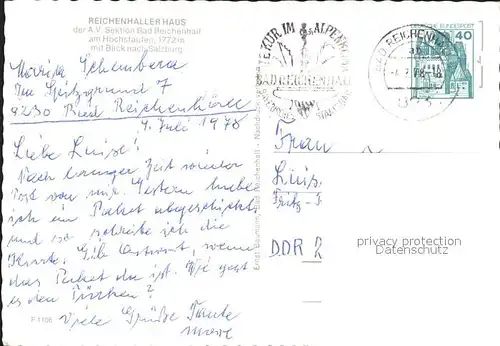 REICHENHALLER HAUS
der A.V. Sektion Bad Reichenhall
am Hochstaufen, 1772 m
mit Blick nach Salzburg
Im Spitzgrund 7
8230 Bad Reichenhall
4. Juli 1978
Liebe Luise!
Nach langer Zeit wieder
Post von mir. Gestern habe
ich ein Paket abgeschickt
und schreibe ich die
Karte. Gib Antwort, wenn
das Paket da ist. Wie geht
es den
Viele Grüße Tante
F 1106
KUR IM ALPENKLIMA
BAD REICHENHALL
BAD REICHENHALL
DEUTSCHE BUNDESPOST
40
Frau
Luis
Fritz-
DDR
privacy protection
Datenschutz